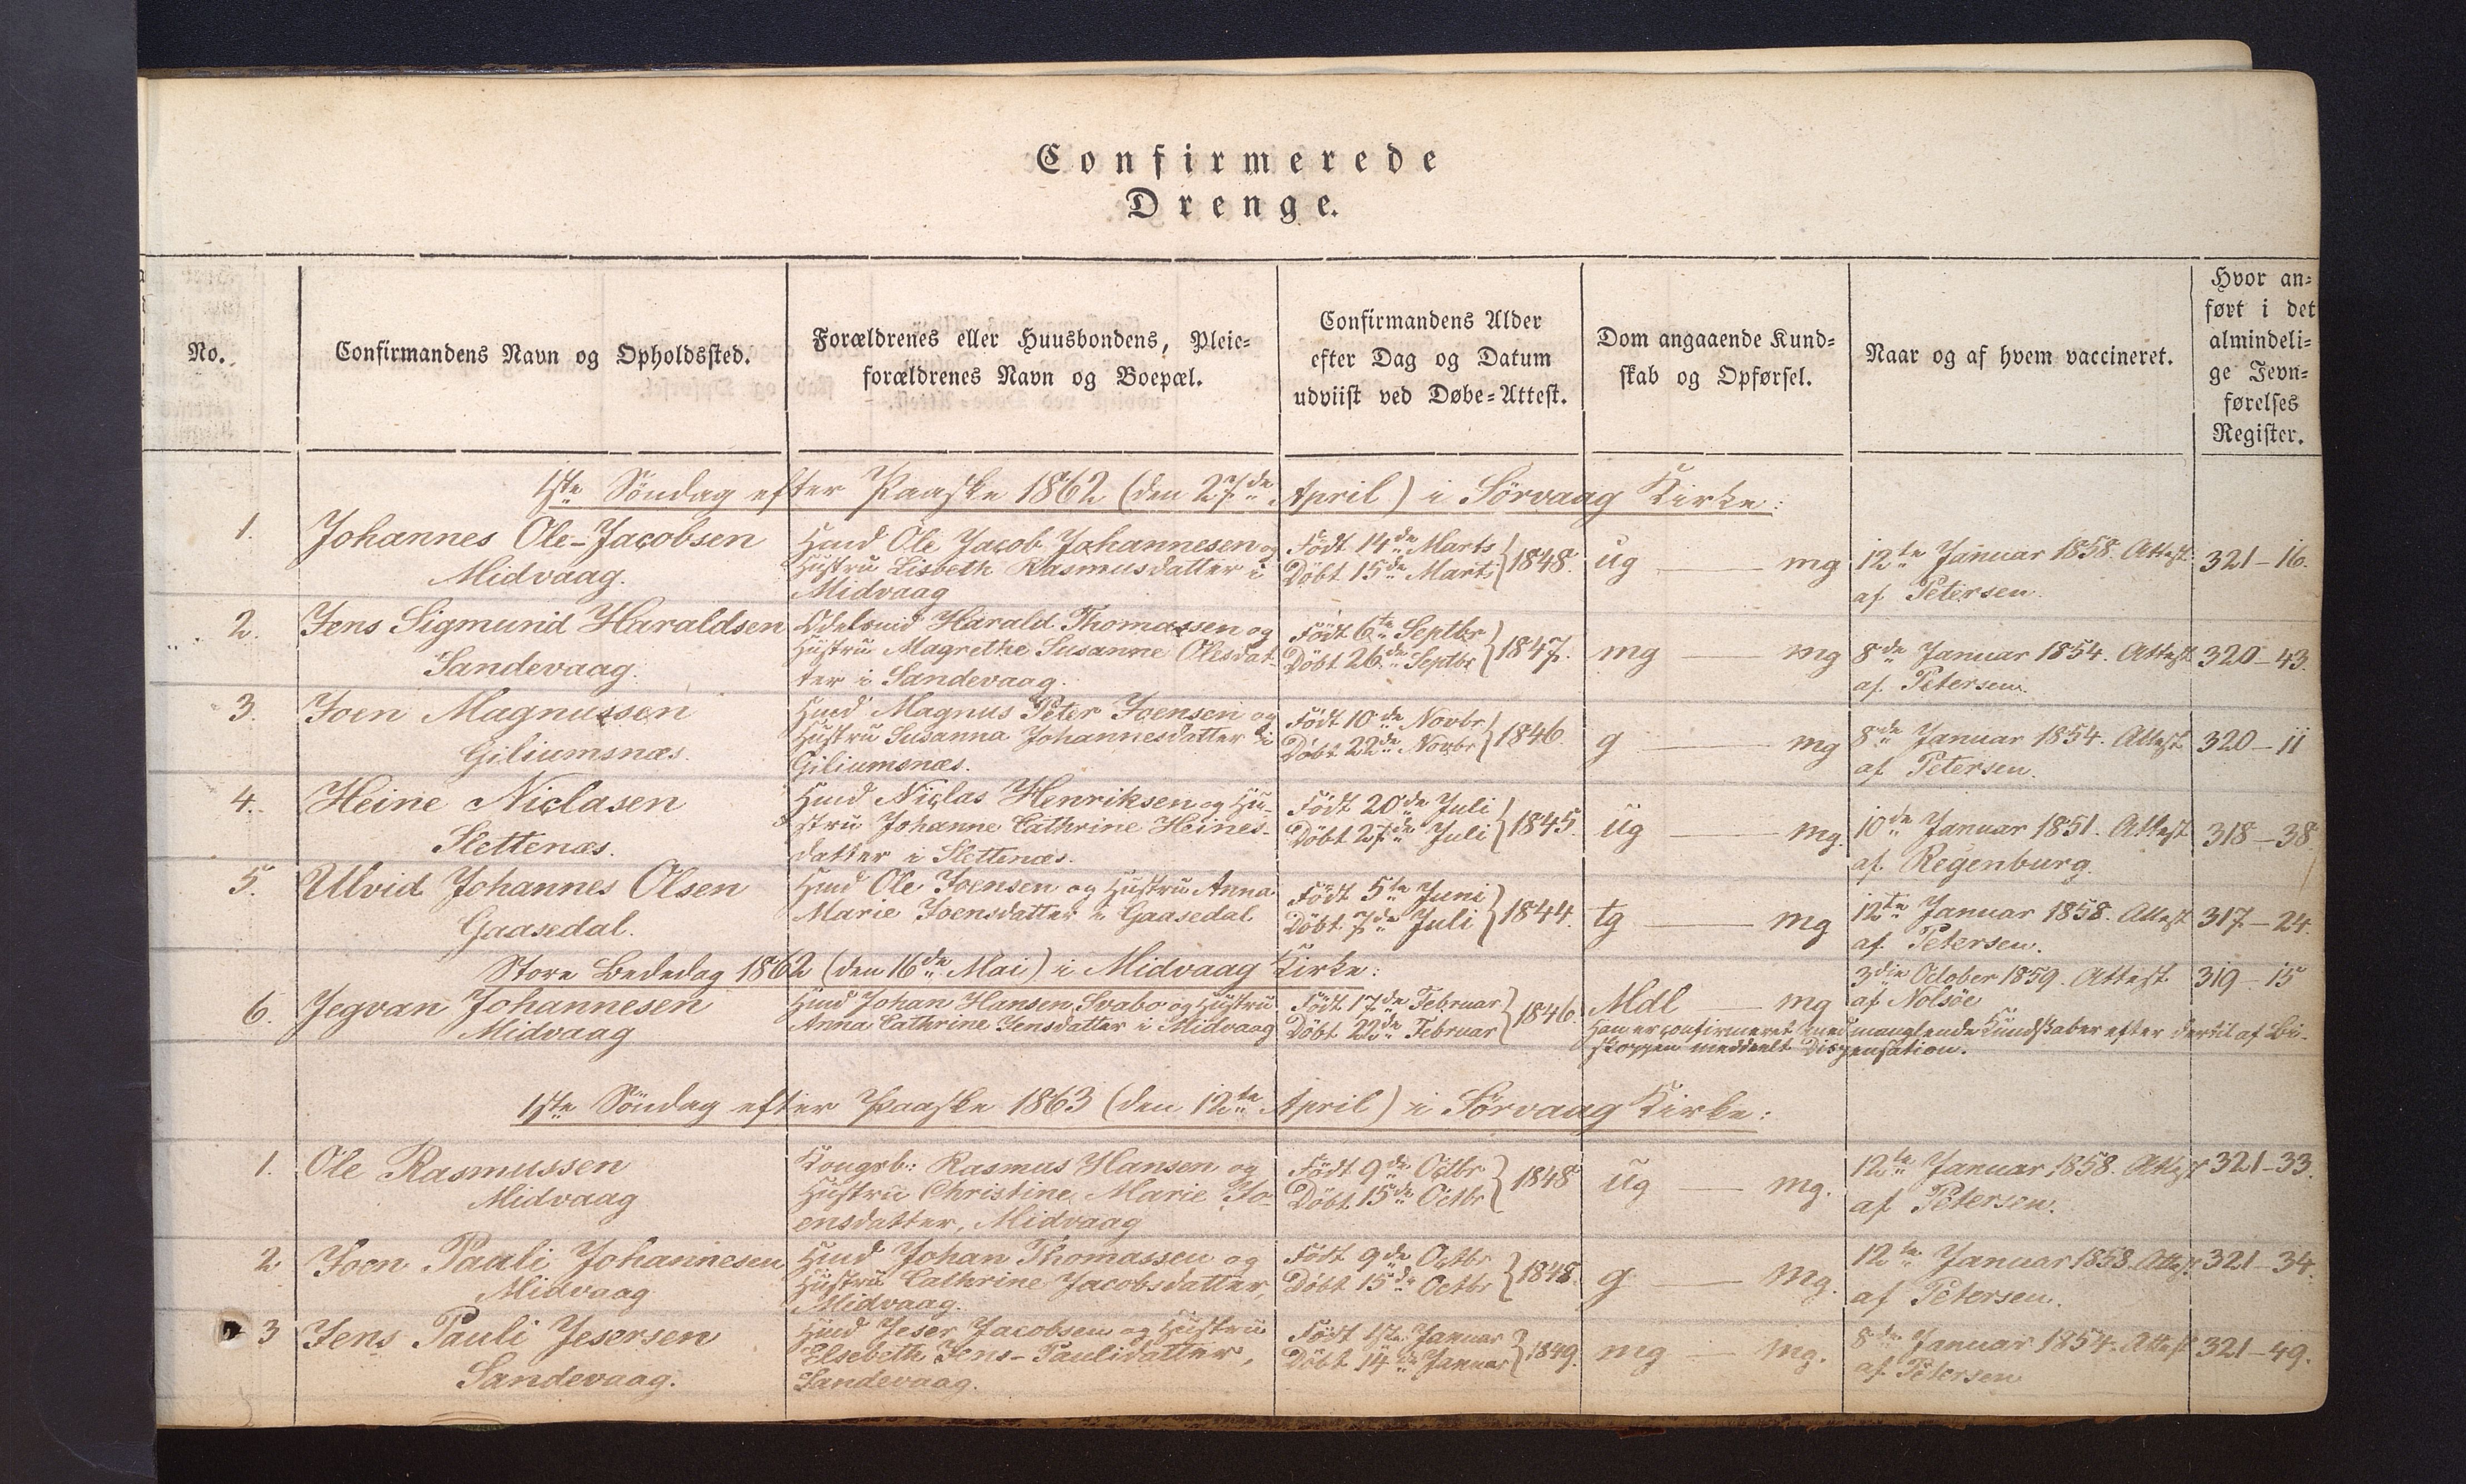 Confirmerede
Drenge.
No.
Confirmandens Navn og Opholdssted.
Forældrenes eller Huusbondens, Pleie=
forældrenes Navn og Boepæl.
Confirmandens Alder
efter Dag og Datum
udviist ved Døbe=Attest.
Dom angaaende Kund=
skab og Opførsel.
Naar og af hvem vaccineret.
Hvor an=
ført i det
almindeli=
ge Jevn=
førelses
Register.
1ste Söndag efter Paaske 1862 (den 27de April) i Sörvaag Kirke:
1.
Johannes Ole-Jacobsen
Midvaag.
Hmd Ole Jacob Johannesen og
Hustru Lisbeth Rasmusdatter i
Midvaag
Födt 14de Marts
Döbt 15de Marts } 1848.
ug — mg
12te Januar 1858. Attest
af Petersen.
321-16.
2.
Jens Sigmund Haraldsen
Sandevaag.
Odelsmd Harald Thomassen og
Hustru Magrethe Susanne Olesdat-
ter i Sandevaag.
Födt 6te Septbr
Döbt 26de Septbr } 1847.
mg — mg
8de Januar 1854. Attest
af Petersen.
320-43.
3.
Joen Magnussen
Giliumsnæs.
Hmd Magnus Peter Joensen og
Hustru Susanna Johannesdatter i
Giliumsnæs.
Födt 10de Novbr
Döbt 22de Novbr } 1846.
g — mg
8de Januar 1854. Attest
af Petersen.
320-11
4.
Heine Niclasen
Slettenæs.
Hmd Niclas Henriksen og Hu-
stru Johanne Cathrine Heines-
datter i Slettenæs.
Födt 20de Juli
Döbt 27de Juli } 1845.
ug — mg.
10de Januar 1851. Attest
af Regenburg.
318-38
5.
Ulvid Johannes Olsen
Gaasedal.
Hmd Ole Joensen og Hustru Anna
Marie Joensdatter i Gaasedal
Födt 5te Juni
Döbt 7de Juli } 1844.
tg — mg
12te Januar 1858. Attest
af Petersen.
317-24.
Store Bededag 1862 (den 16de Mai) i Midvaag Kirke:
6.
Jegvan Johannesen
Midvaag
Hmd Johan Hansen Svabo og Hustru
Anna Cathrine Jensdatter i Midvaag
Födt 17de Februar
Döbt 22de Februar } 1846.
Mdl — mg
3die October 1859. Attest
af Nolsöe
319-15
Han er confirmeret med manglende Kundskaber efter dertil af Bi-
skoppen meddeelt Dispensation.
1ste Söndag efter Paaske 1863 (den 12te April) i Sörvaag Kirke:
1.
Ole Rasmussen
Midvaag
Kongsb: Rasmus Hansen og
Hustru Christine Marie Jo-
ensdatter, Midvaag
Födt 9de Octbr
Döbt 15de Octbr } 1848
ug — mg.
12te Januar 1858. Attest
af Petersen.
321-33.
2
Joen Pauli Johannesen
Midvaag
Hmd Johan Thomassen og
Hustru Cathrine Jacobsdatter,
Midvaag.
Födt 9de Octbr
Döbt 15de Octbr } 1848
g — mg.
12te Januar 1858. Attest
af Petersen.
321-34.
3
Jens Pauli Jesersen
Sandevaag.
Hmd Jeser Jacobsen og Hustru
Elsebeth Jens-Paulidatter,
Sandevaag.
Födt 1ste Januar
Döbt 14de Januar } 1849.
mg — mg.
8de Januar 1854. Attest
af Petersen
321-49.